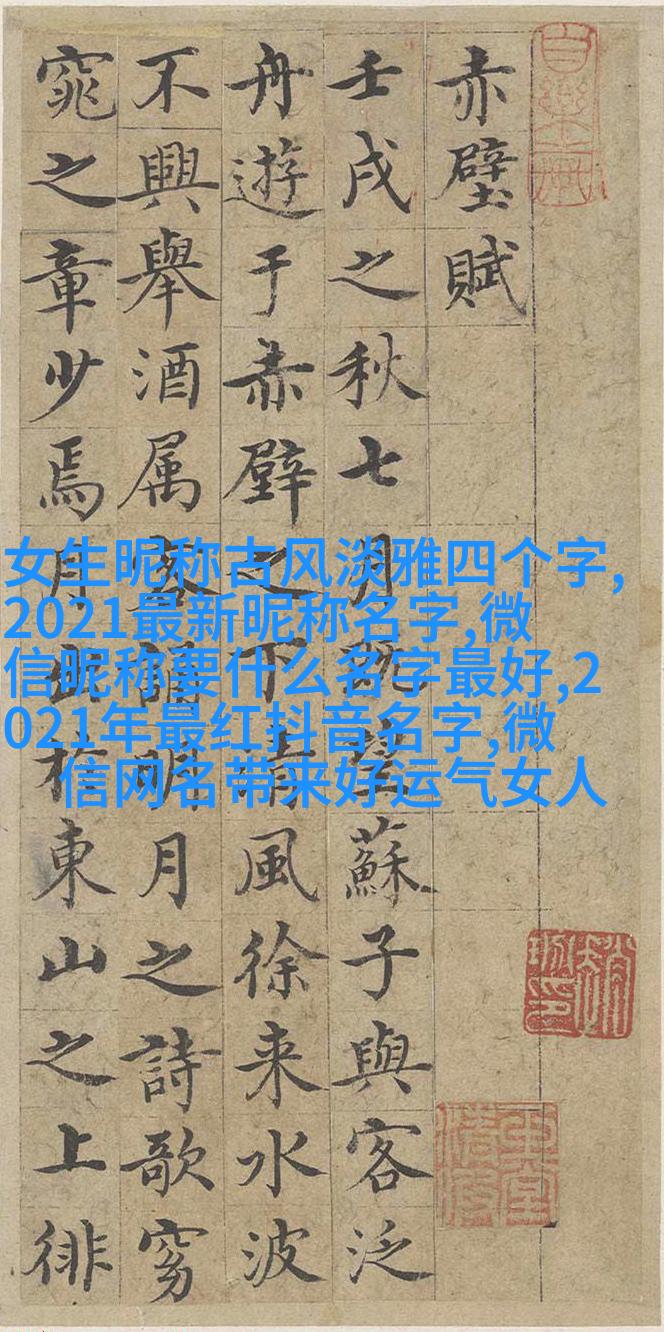 赤壁賦
壬戌之秋七月既望蘇子與客泛
舟遊于赤壁之下清風徐来水波
不興舉酒属客誦明月之詩歌窈
窕之章少焉月出於東山之上徘
女生昵称古风淡雅四个字,
2021最新昵称名字,微
信昵称要什么名字最好,2
021年最红抖音名字,微
信网名带来好运气女人